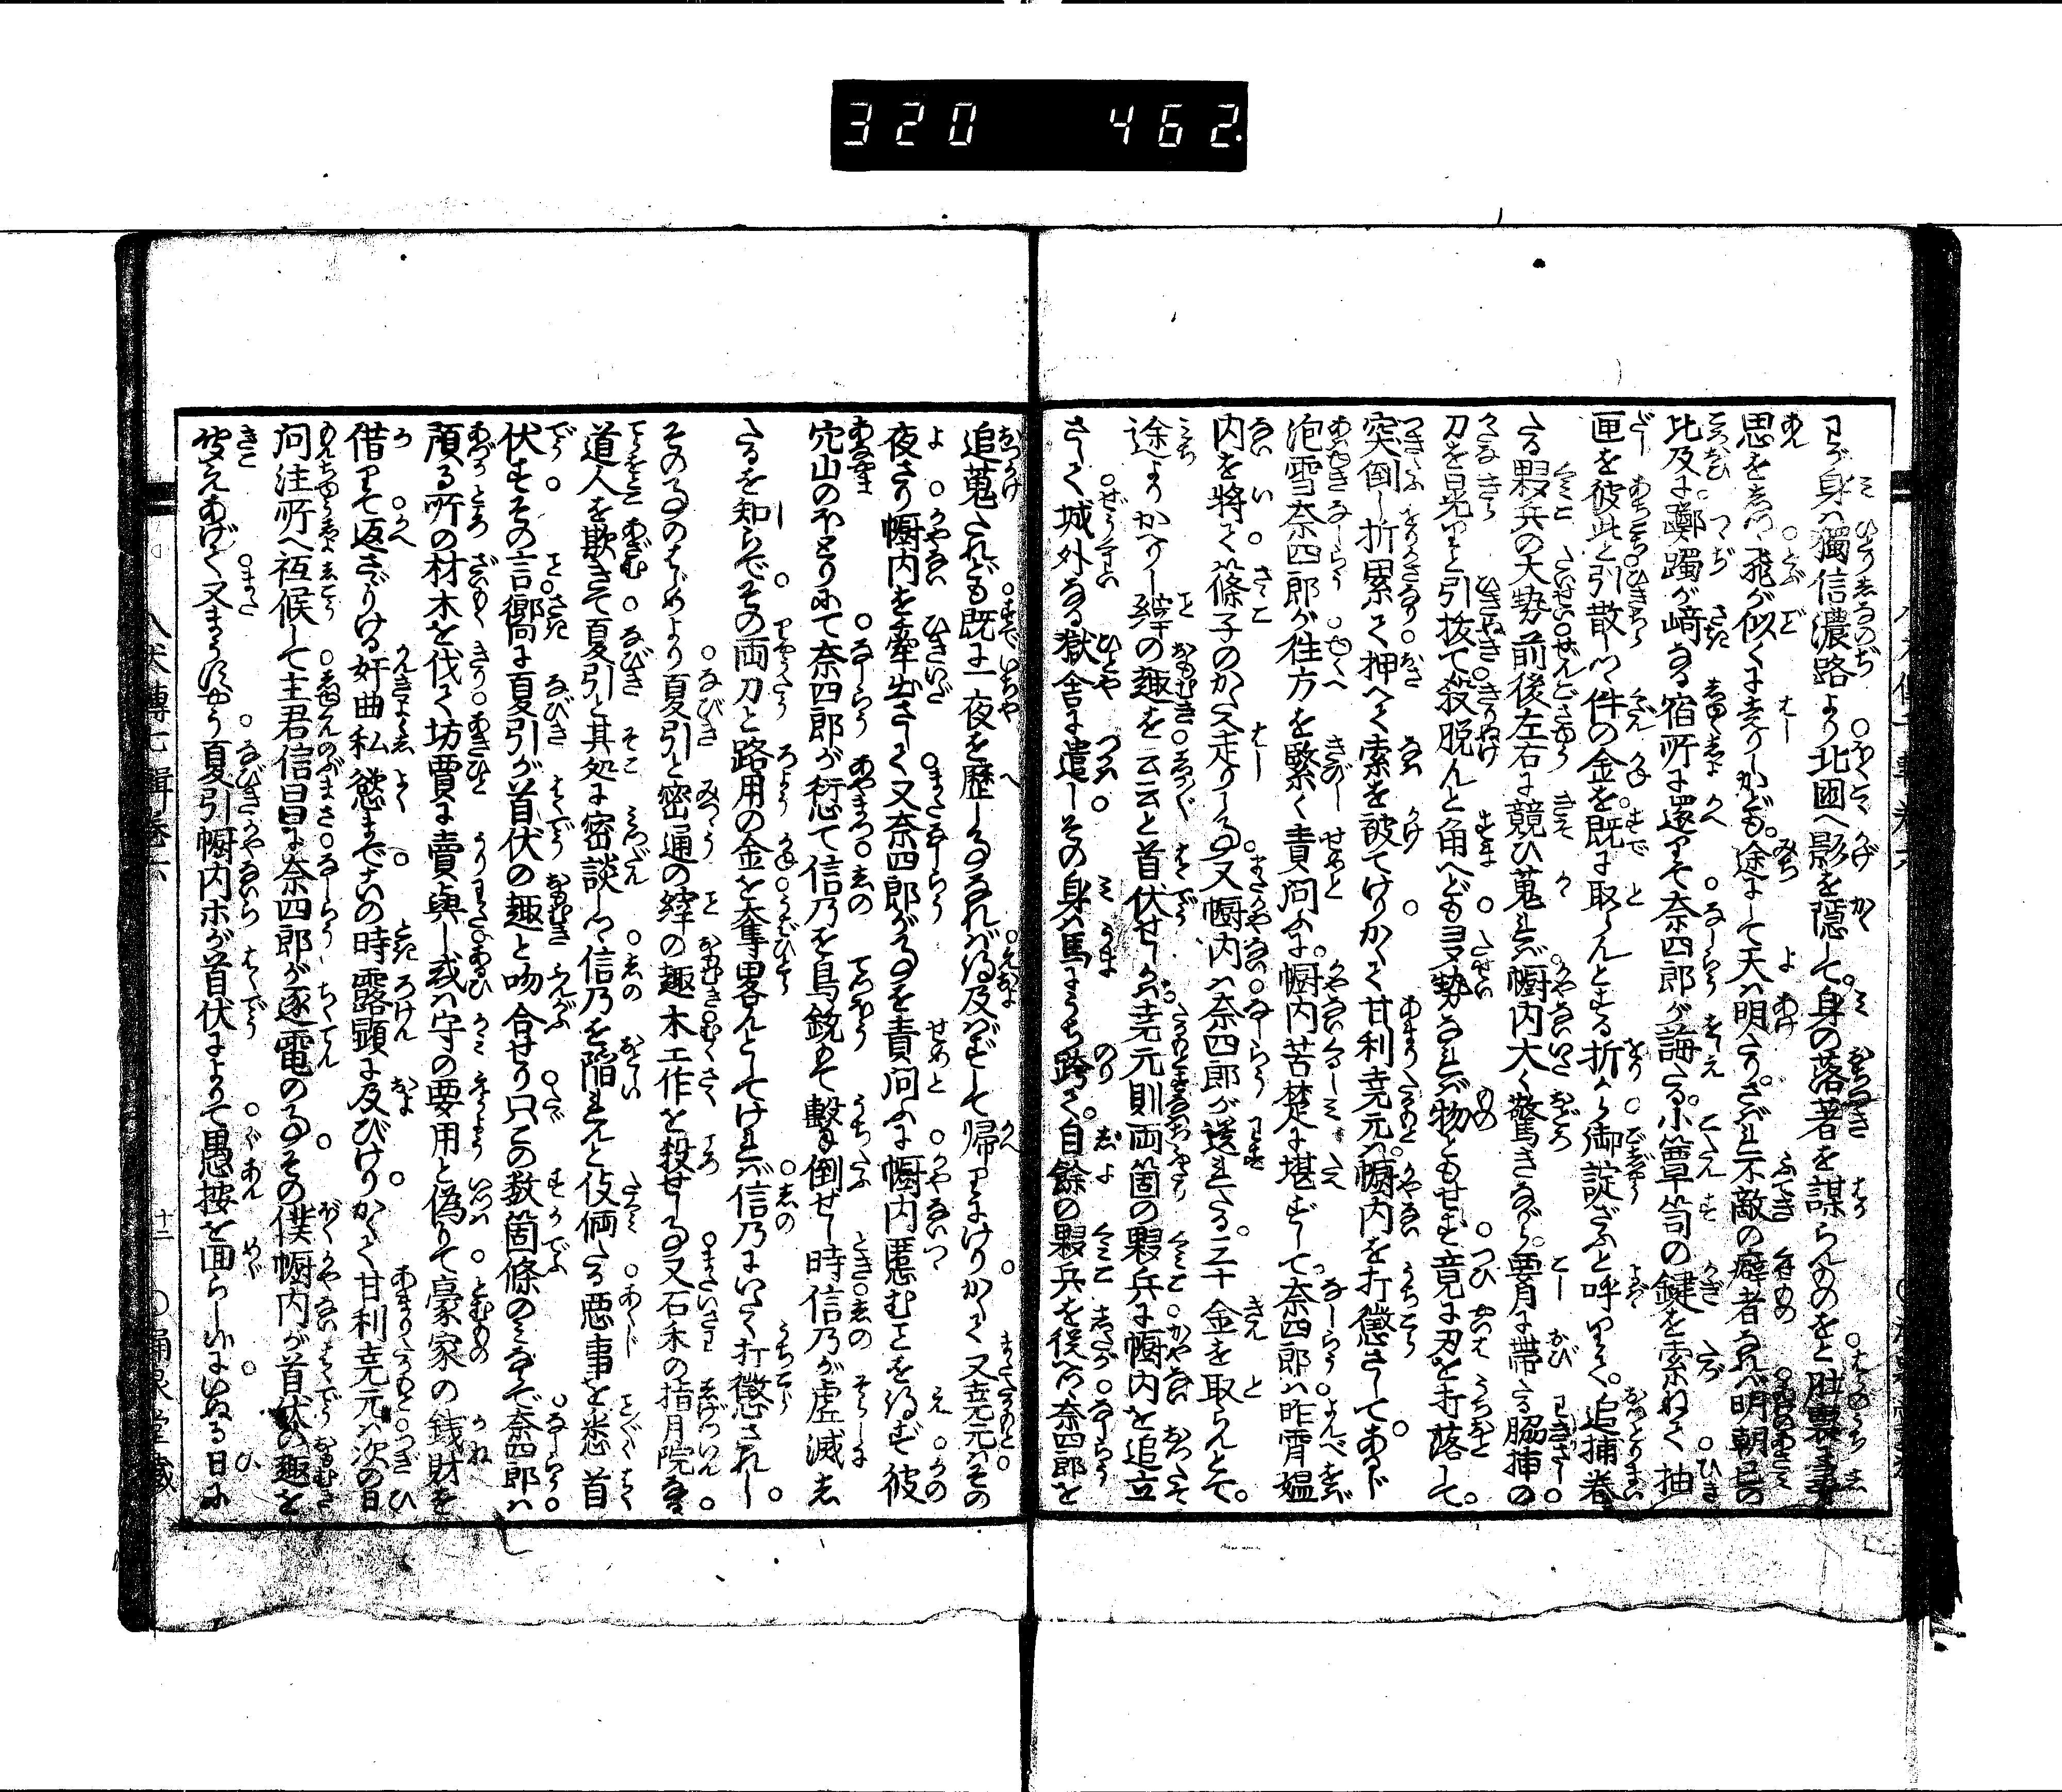 320 462
わが身は獨信濃路より北國へ影を隱して。身の落著を謀らんものをと肚裏に事
思をしつゝ飛が似くに走りしかども。途にして天は明たり。さばれ不敵の癖者なれば明朝巳の
比及に躑躅が﨑なる宿所に還りて奈四郎が誨たる。小簞笥の鍵を索ねて抽
匣を彼此と引散しつゝ件の金を既に取らんとする折から御諚ざふと呼りて。追捕巻
たる夥兵の大勢前後左右に競ひ蒐れば媼内大く驚きながら。要に帶たる脇挿の
刀を晃りと引抜て殺脱んと角へども多勢なれば物ともせず竟に刃を打落して。
突倒し折累て押へて索を被てけりかくて甘利尭元は媼内を打懲さしてあるじ
泡雪奈四郎が往方を緊く責問ふに。媼内苦楚に堪ずして奈四郎は昨宵媼
内を將て篠子のかた走りし事又媼内は奈四郎が遺れたる。三十金を取らんとて。
途よりかへりし縡の趣を云云と首伏せしかば尭元則両箇の夥兵に媼内を追立
さして城外なる獄舎に遣しその身は馬にうち跨て。自餘の夥兵を従へ奈四郎を
追蒐たれども既に一夜を歴し事なれば得及ばずして帰りにけりかくて又尭元はその
夜さり媼内を牽出さして又奈四郎が事を責問ふに媼内匿むことを得ず彼
穴山のほとりにて奈四郎が愆て信乃を鳥銃もて擊倒せし時信乃が虚滅し
たるを知らでその両刀と路用の金を奪畧んとしてければ信乃にいたく打懲されし
その事のはじめより夏引と密通の縡の趣木工作を殺せし事又石禾の指月院なる
道人を欺きて夏引と其処に密談しつゝ信乃を陥れんと伎倆たる悪事を悉首
伏すその言嚮に夏引が首伏の趣と吻合せり只この数箇條のみならで奈四郎は
預る所の材木を伐て坊賈に賣與し或は守の要用と偽りて豪家の銭財を
借りて返さゞりける奸曲私慾までこの時露顕に及びけりかくて甘利尭元は次の日
問注所へ祗候して主君信昌に奈四郎が逐電の事その僕媼内が首伏の趣を
聞えあげて又まうすやう夏引媼内ホが首伏によりて愚按を囬らし候にいぬる日に
八犬傳七輯巻六
十二
○涌泉堂藏